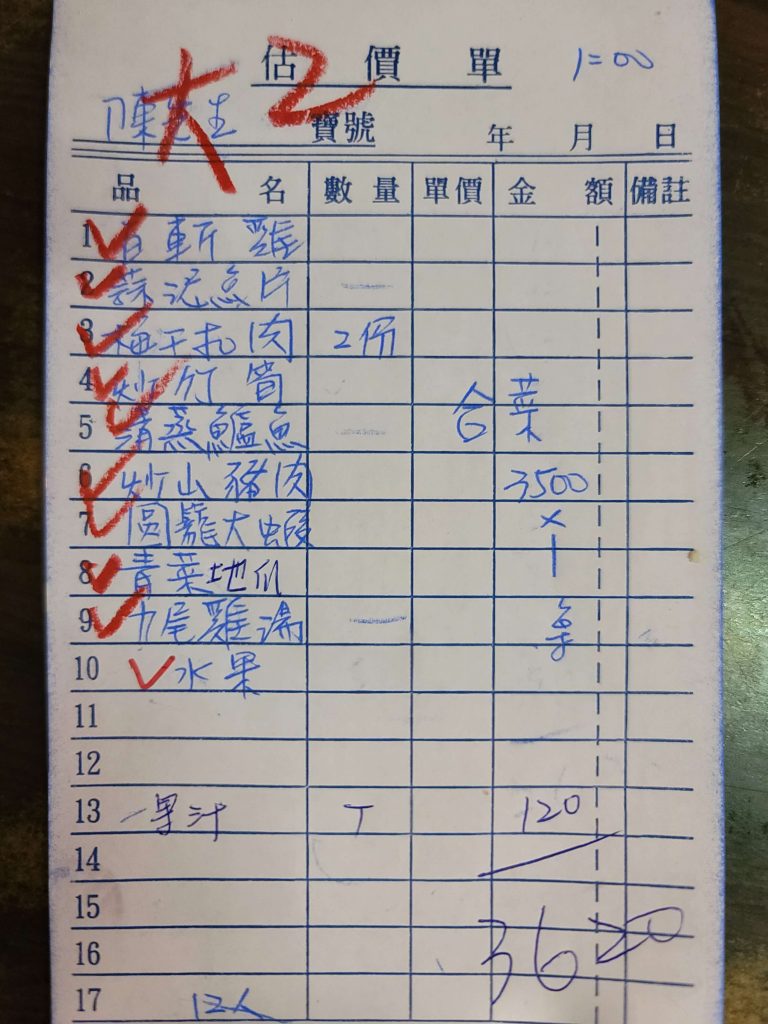 估價單 1=00
陳先生 大2 寶號 年 月 日
品名 數量 單價 金額 備註
1 白斬雞
2 蒜泥魚片
3 梅干扣肉 2份
4 炒竹筍
5 清蒸鱸魚 合菜
6 炒山豬肉 3500
7 圓籠大蝦 ×
8 青菜地瓜 1
9 九尾雞湯 桌
10 水果
11
12
13 果汁 120
14
15
16 3620
17 12人